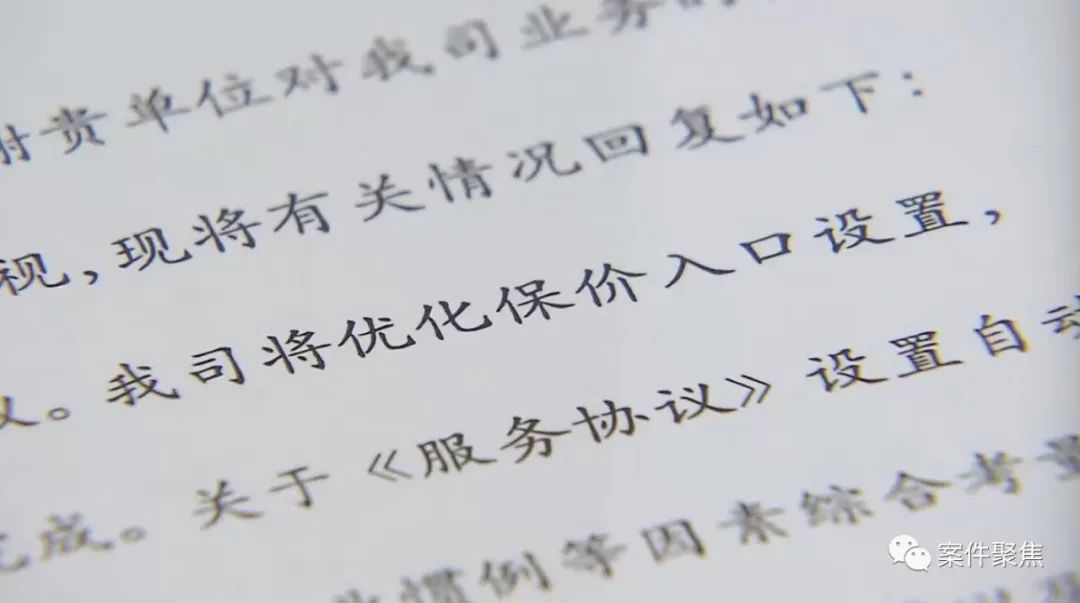 谢贵单位对我司业务的
视,现将有关情况回复如下:
议。我司将优化保价入口设置,
完成。关于《服务协议》设置自动
业惯例等因素综合考量
案件聚焦